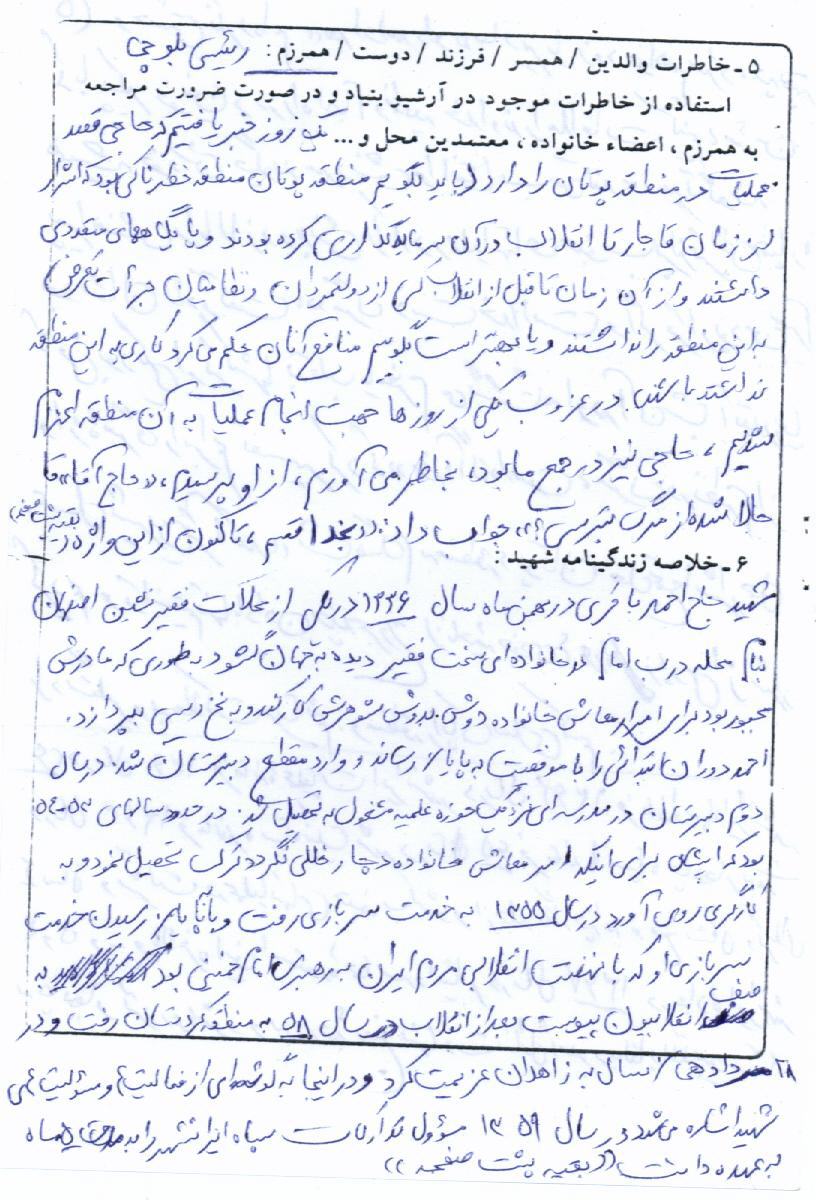 ۵ - خاطرات والدین / همسر / فرزند / دوست / همرزم : رئیسی بلوچی
استفاده از خاطرات موجود در آرشیو بنیاد و در صورت ضرورت مراجعه
به همرزم ، اعضاء خانواده ، معتمدین محل و ... یک روز خبر یافتیم که حاجی قصد
عملیات در منطقه پوتان را دارد (باید بگویم منطقه پوتان منطقه خطرناکی بود که اشرار
از زمان قاجار تا انقلاب در آن سرمایه‌گذاری کرده بودند و پایگاههای متعددی
داشتند و از آن زمان تا قبل از انقلاب کسی از دولتمردان و نظامیان جرأت تعرض
به این منطقه را نداشتند و یا بهتر است بگوییم منافع آنان حکم می‌کرد کاری به این منطقه
نداشته باشند. در غروب یکی از روزها جهت انجام عملیات به آن منطقه اعزام
شدیم ، حاجی نیز در جمع ما بود، بخاطر می‌آورم ، از او پرسیدم ، «حاج آقا تا
حالا شده از مرگ بترسی؟» جواب داد: «بخدا قسم ، تاکنون از این واژه در بقیه پشت صفحه
۶ - خلاصه زندگینامه شهید :
شهید حاج احمد باقری در بهمن ماه سال ۱۳۳۶ در یکی از محلات فقیر نشین اصفهان
بنام محله درب امام در خانواده‌ای سخت فقیر دیده به جهان گشود بطوری که مادرش
مجبور بود برای امرار معاش خانواده دوش بدوش شوهرش کار کند و به نخ ریسی بپردازد.
احمد دوران ابتدائی را با موفقیت به پایان رساند و وارد مقطع دبیرستان شد. در سال
دوم دبیرستان در مدرسه‌ای نزدیک حوزه علمیه مشغول به تحصیل شد. در حدود سالهای ۵۳-۵٤
بود که ایشان برای اینکه امر معاش خانواده دچار خللی نگردد ترک تحصیل نمود و به
کارگری روی آورد در سال ۱۳۵۵ به خدمت سربازی رفت و با پایان رسیدن خدمت
سربازی او که با نهضت انقلابی مردم ایران به رهبری امام خمینی بود به
صف انقلابیون پیوست بعد از انقلاب در سال ۵۸ به منطقه کردستان رفت و در
۲۸ دی همان سال به زاهدان عزیمت کرد و در اینجا به گوشه‌ای از فعالیتها و مسؤلیت های
شهید اشاره می‌شود در سال ۱۳۵۹ مسؤول تدارکات سپاه ایرانشهر را به مدت ۵ ماه
به عهده داشت «بقیه پشت صفحه»